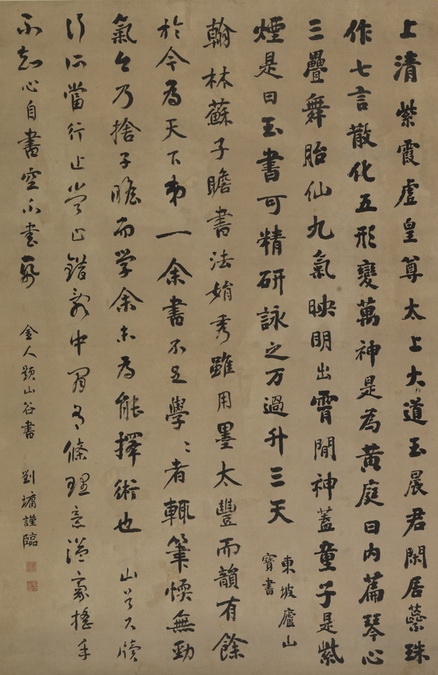 上清紫霞虛皇尊太上大道玉晨君閑居蘂珠
作七言散化五形變萬神是為黃庭曰內篇琴心
三疊舞胎仙九氣映明出霄間神蓋童子是紫
煙是曰玉書可精研詠之万過升三天 東坡廬山
寶書
翰林蘇子瞻書法娟秀雖用墨太豐而韻有餘
於今為天下第一余書不足學〻者輒筆愞無勁
氣今乃捨子瞻而学余未為能擇術也 山谷尺牘
行所當行止當止錯亂中間有條理意溢豪搖手
不知心自書空不書紙 金人題山谷書 劉墉謹臨